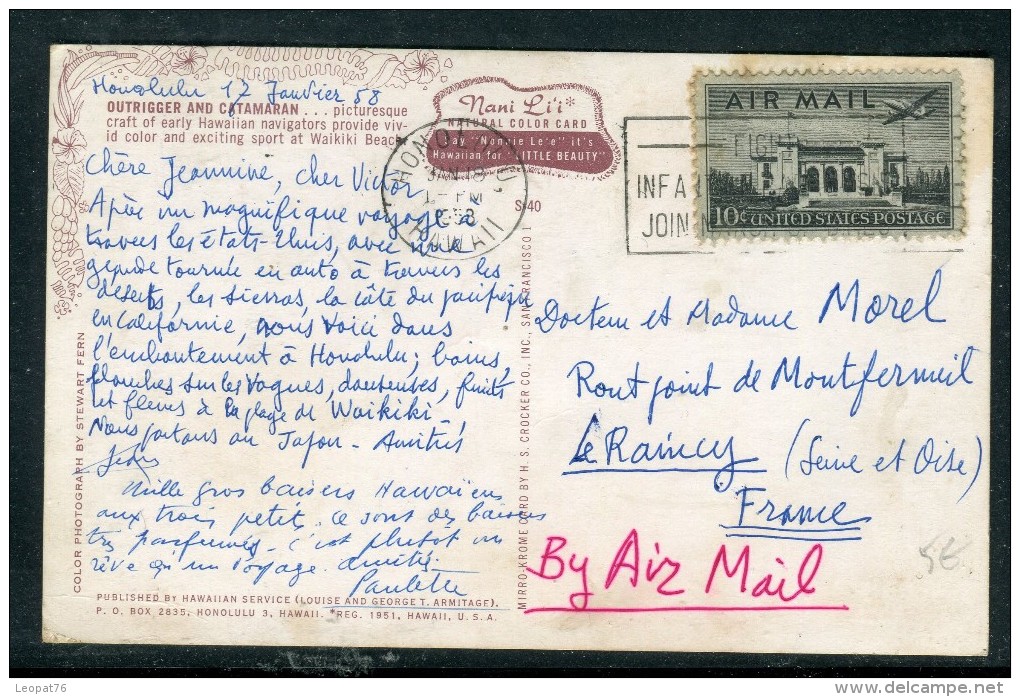 Honolulu 17 Janvier 58
OUTRIGGER AND CATAMARAN ... picturesque
craft of early Hawaiian navigators provide viv-
id color and exciting sport at Waikiki Beach
Nani Li'i*
NATURAL COLOR CARD
Say "Nonnie Le'e" it's
Hawaiian for "LITTLE BEAUTY"
S-40
HONOLULU,
JAN 18
PM
1958
HAWAII
AIR MAIL
10¢ UNITED STATES POSTAGE
FIGHT
INFA
JOIN
Chère Jeannine, cher Victor
Après un magnifique voyage à
travers les états-Unis, avec une
grande tournée en auto à travers les
déserts, les sierras, la côte du pacifique
en californie, nous voici dans
l'enchantement à Honolulu; bains,
planches sur les vagues, danseuses, fruits
et fleurs à la plage de Waikiki.
Nous partons au Japon - Amitiés
Mille gros baisers Hawaïens
aux trois petits. Ce sont des baisers
très parfumés. C'est plutôt un
rêve qu'un voyage. Amitiés.
Paulette
PUBLISHED BY HAWAIIAN SERVICE (LOUISE AND GEORGE T. ARMITAGE),
P. O. BOX 2835, HONOLULU 3, HAWAII. *REG. 1951, HAWAII, U.S.A.
COLOR PHOTOGRAPH BY STEWART FERN
MIRRO-KROME CARD BY H. S. CROCKER CO., INC., SAN FRANCISCO 1
Docteur et Madame Morel
Ront point de Montfermeil
Le Raincy (Seine et Oise)
France
By Air Mail
5€
Leopat76
delcampe.net